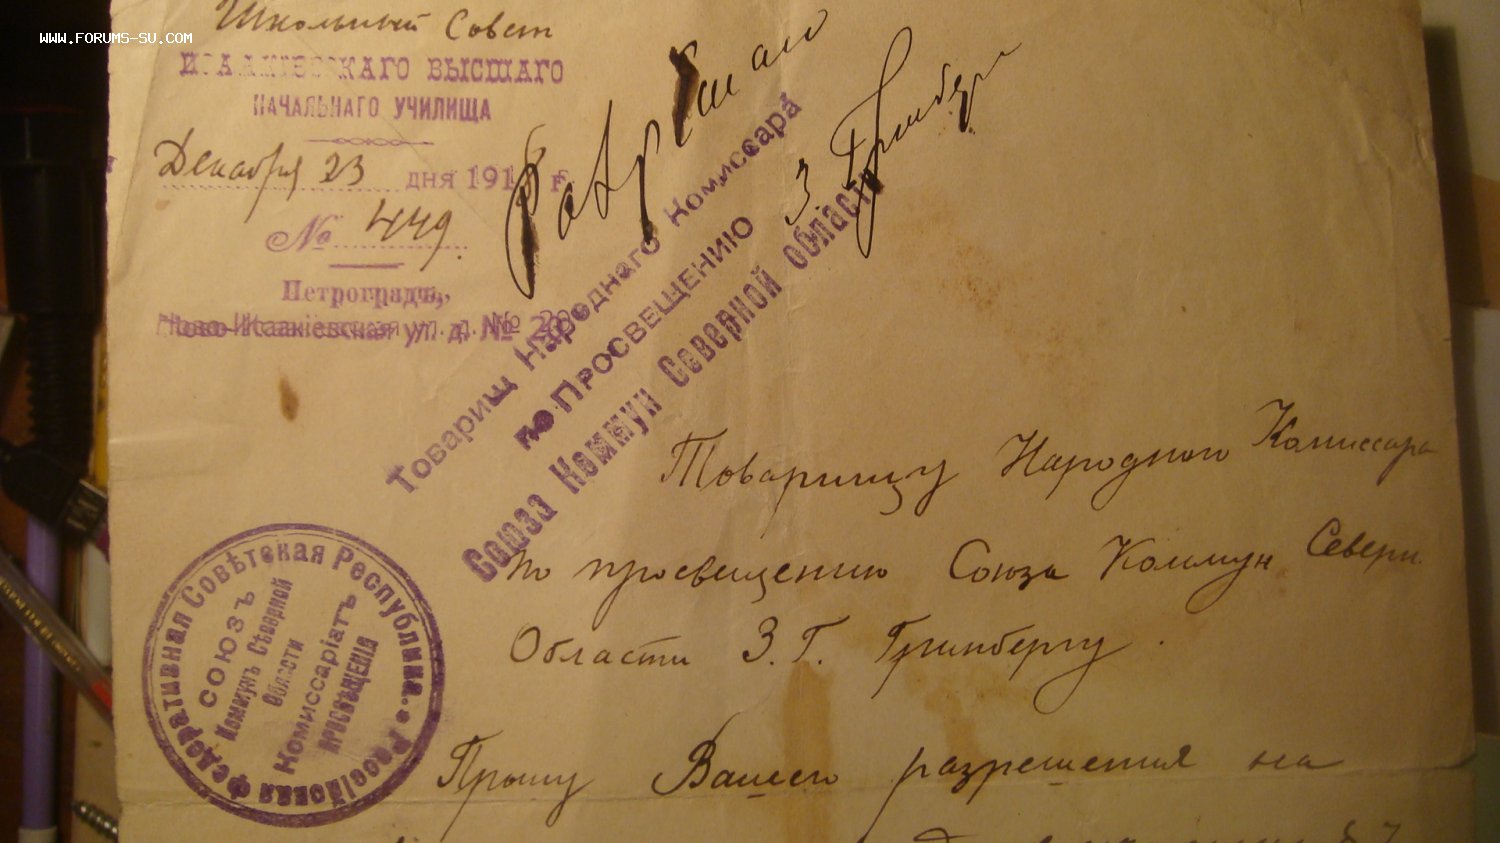 WWW.FORUMS-SU.COM
Школьный Совет
ИСААКІЕВСКАГО ВЫСШАГО
НАЧАЛЬНАГО УЧИЛИЩА
Декабря 23 дня 1918 г.
№ 449.
Петроградъ,
Ново-Исаакіевская ул. д. № 20
Разрѣшаю
З. Гринберг
Товарищ Народнаго Комиссара
по Просвещению
Союза Коммун Северной Области
Товарищу Народного Комиссара
по просвещению Союза Коммун Северн.
Области З. Г. Гринбергу.
Российская Федеративная Совѣтская Республика.
СОЮЗЪ
Коммунъ Сѣверной
Области
Комиссаріатъ
ПРОСВѢЩЕНІЯ
Прошу Вашего разрешения на